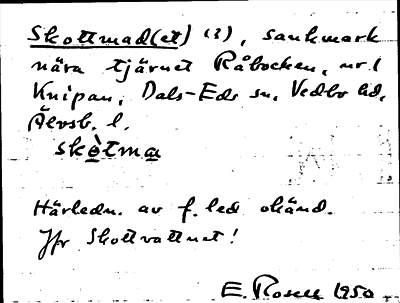 Skottmad(et) (?), sankmark
nära tjärnet Råbocken, nr 1
Knipan, Dals-Eds sn, Vedbo hd,
Älvsb. l.
skòtma
Härledn. av f. led okänd.
Jfr Skottvattnet!
E. Rosell 1950